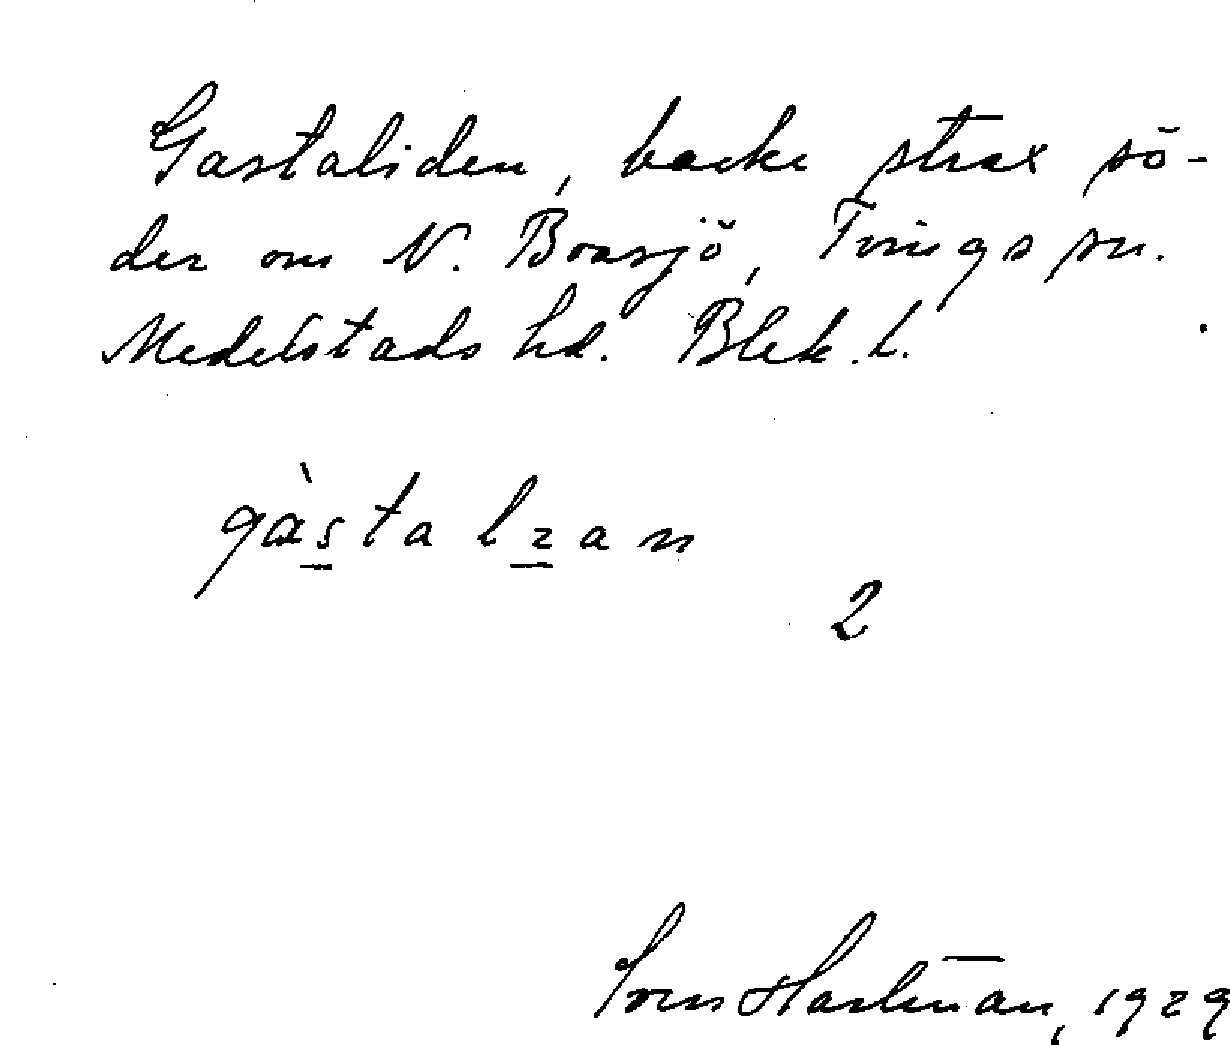 Gastaliden, backe strax sö-
der om N. Boasjö, Tvings sn.
Medelstads hd. Blek. l.
gàsta lıan
2
Sven Hartman, 1929